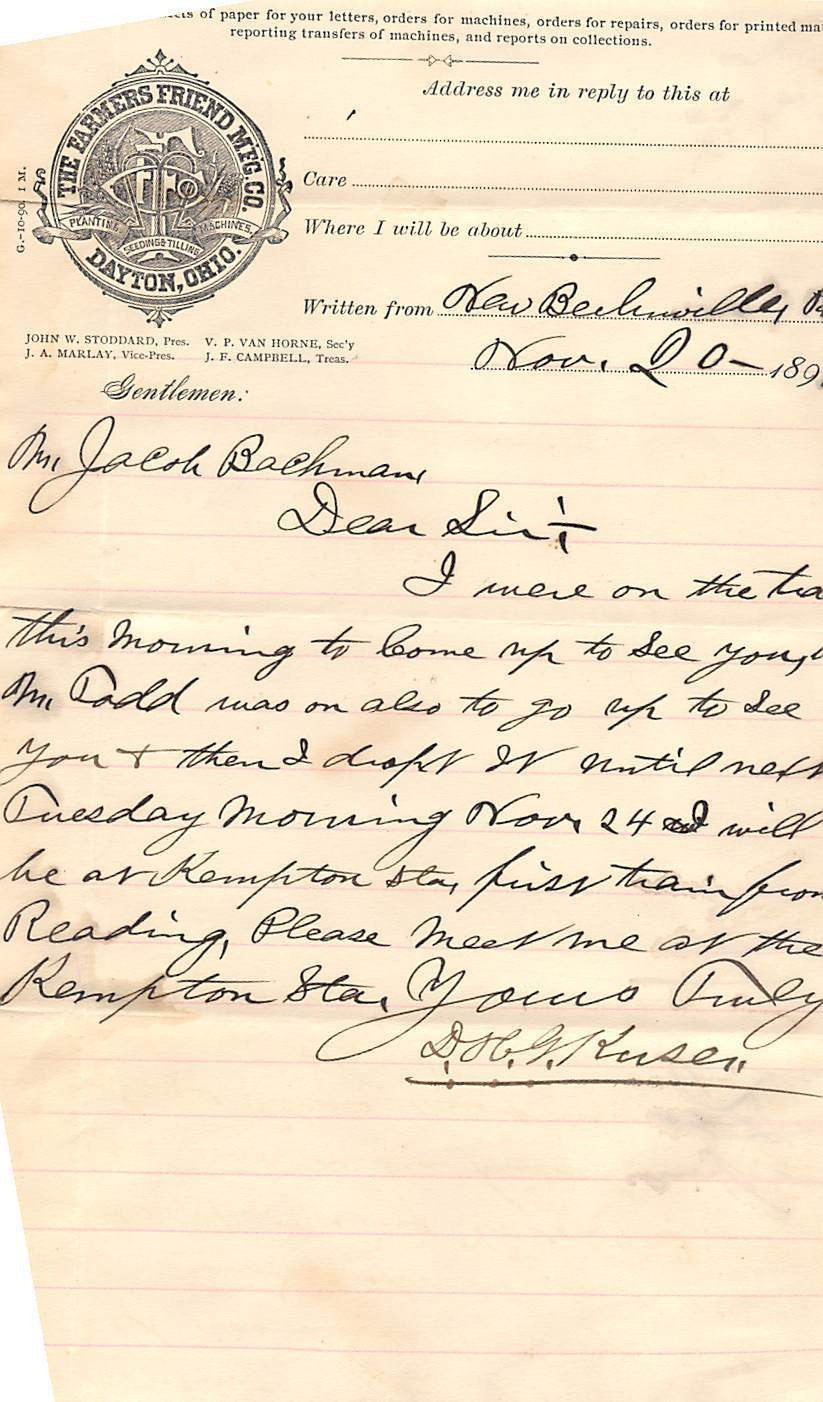 of paper for your letters, orders for machines, orders for repairs, orders for printed
reporting transfers of machines, and reports on collections.
Address me in reply to this at
THE FARMERS FRIEND M'F'G. CO.
PLANTING
SEEDING & TILLING
MACHINES.
DAYTON, OHIO.
G.-10-90. 1 M.
Care
Where I will be about
Written from New
Nov. 20 - 189
JOHN W. STODDARD, Pres. V. P. VAN HORNE, Sec'y
J. A. MARLAY, Vice-Pres. J. F. CAMPBELL, Treas.
Gentlemen:
Mr Jacob Bachman,
Dear Sir:
I were on the
this morning to Come up to See you,
Mr Todd was on also to go up to See
you & then I dropt It until next
Tuesday Morning Nov. 24 I will
be at Kempton Sta, first train from
Reading, Please Meet me at the
Kempton Sta. Yours Truly
D. H. G.